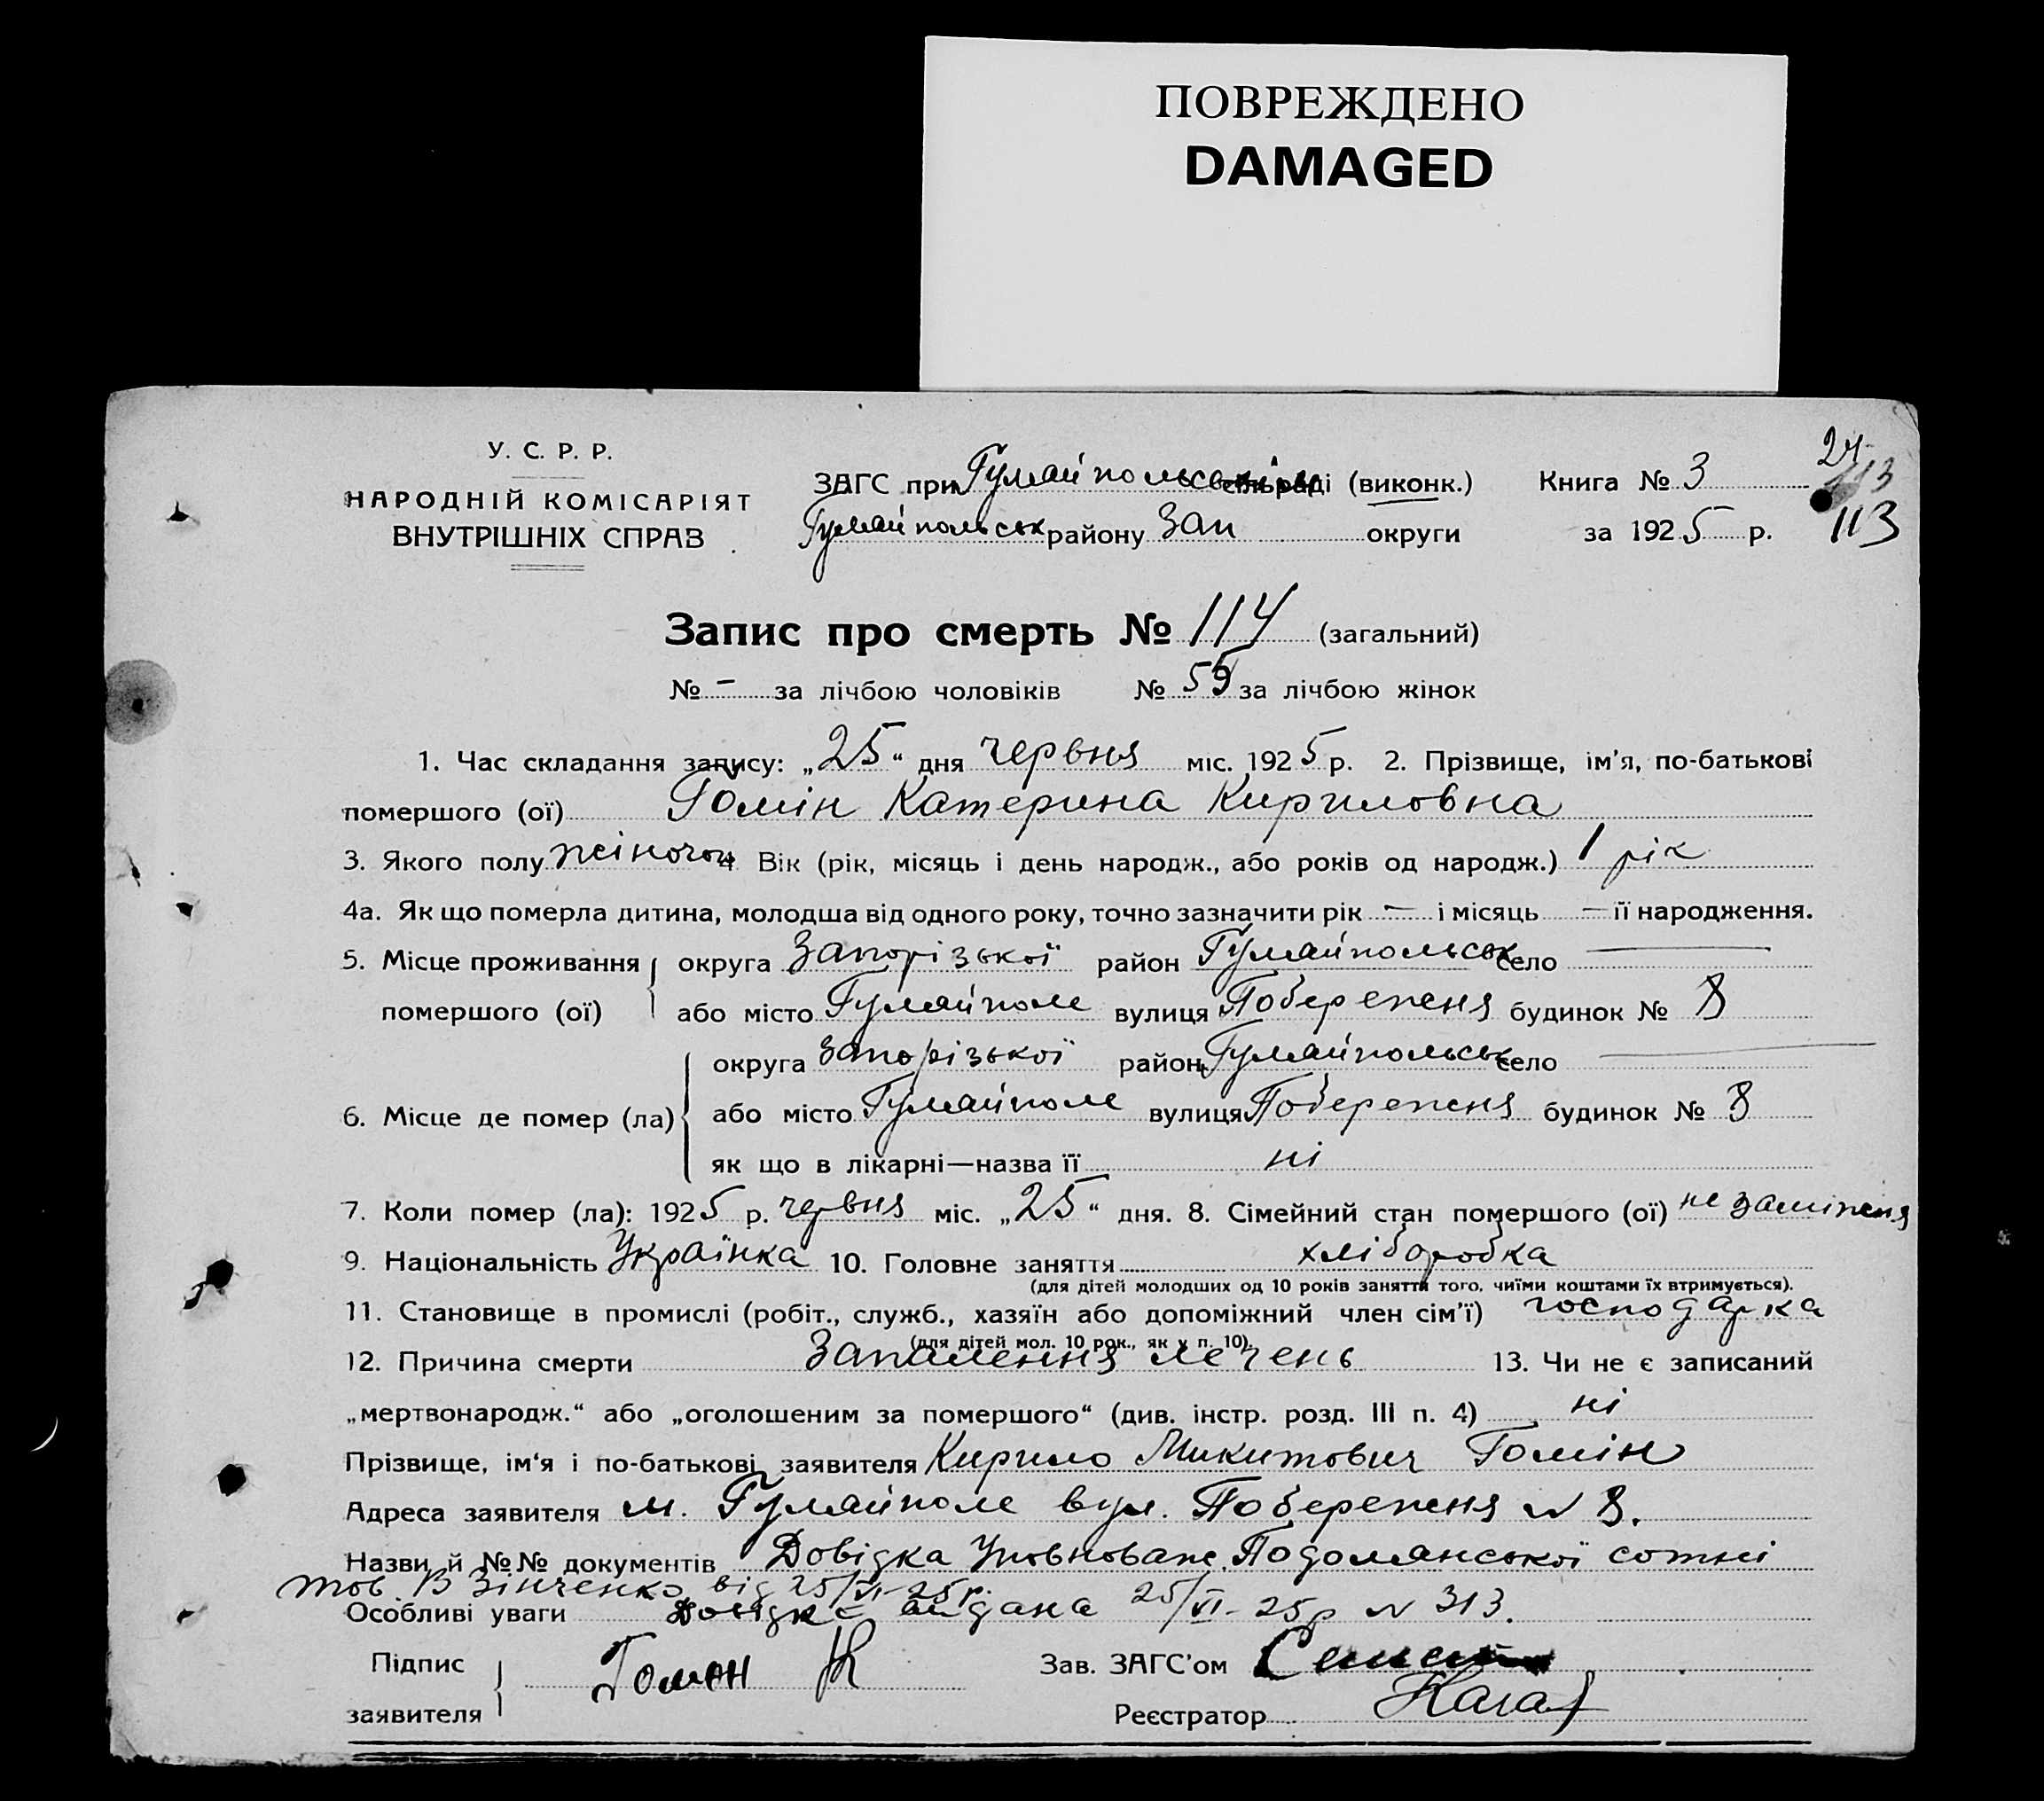 ПОВРЕЖДЕНО
DAMAGED
У. С. Р. Р.
НАРОДНІЙ КОМІСАРІЯТ
ВНУТРІШНІХ СПРАВ
ЗАГС при Гуляйпольськ сільраді (виконк.) Книга № 3
Гуляйпольськ району Зап округи за 1925 р.
24
113
113
Запис про смерть № 114 (загальний)
№ – за лічбою чоловіків № 59 за лічбою жінок
1. Час складання запису: „25“ дня червня міс. 1925 р. 2. Прізвище, ім'я, по-батькові
помершого (ої) Гомін Катерина Кириловна
3. Якого полу жіночой 4 Вік (рік, місяць і день народж., або років од народж.) 1 рік
4а. Як що померла дитина, молодша від одного року, точно зазначити рік — і місяць — її народження.
5. Місце проживання округа Запорізької район Гуляйпольськ село —
помершого (ої) або місто Гуляйполе вулиця Побережня будинок № 8
округа Запорізької район Гуляйпольськ село —
6. Місце де помер (ла) або місто Гуляйполе вулиця Побережня будинок № 8
як що в лікарні—назва її ні
7. Коли помер (ла): 1925 р. червня міс. „25“ дня. 8. Сімейний стан помершого (ої) не заміжня
9. Національність Українка 10. Головне заняття хліборобка
(для дітей молодших од 10 років заняття того, чиїми коштами їх втримується).
11. Становище в промислі (робіт., служб., хазяїн або допоміжний член сім'ї) господарка
(для дітей мол. 10 рок., як у п. 10)
12. Причина смерти Запалення легень 13. Чи не є записаний
„мертвонародж.“ або „оголошеним за помершого“ (див. інстр. розд. III п. 4) ні
Прізвище, ім'я і по-батькові заявителя Кирило Микитович Гомін
Адреса заявителя м. Гуляйполе вул. Побережня № 8.
Назви й №№ документів Довідка Уповноваж. Подолянської сотні
тов. В Зінченко від 25/VI-25р.
Особливі уваги Довідка видана 25/VI-25р № 313.
Підпис
заявителя Гомон К
Зав. ЗАГС'ом
Реєстратор